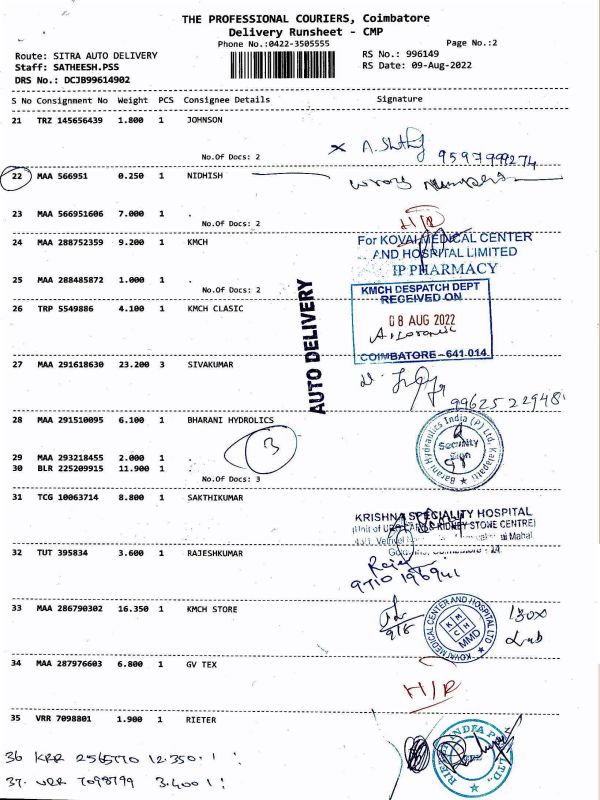 THE PROFESSIONAL COURIERS, Coimbatore
Delivery Runsheet - CMP
Phone No.:0422-3505555
Page No.:2
Route: SITRA AUTO DELIVERY
RS No.: 996149
Staff: SATHEESH.PSS
RS Date: 09-Aug-2022
DRS No.: DCJB99614902
S No Consignment No Weight PCS Consignee Details Signature
21 TRZ 145656439 1.800 1 JOHNSON
No.Of Docs: 2
9597999274
22 MAA 566951 0.250 1 NIDHISH
wrong Numbers
23 MAA 566951606 7.000 1 .
No.Of Docs: 2
H/R
24 MAA 288752359 9.200 1 KMCH
For KOVAI MEDICAL CENTER
AND HOSPITAL LIMITED
IP PHARMACY
25 MAA 288485872 1.000 1 .
No.Of Docs: 2
KMCH DESPATCH DEPT
RECEIVED ON
26 TRP 5549886 4.100 1 KMCH CLASIC
08 AUG 2022
COIMBATORE - 641 014
AUTO DELIVERY
27 MAA 291618630 23.200 3 SIVAKUMAR
9962522948
28 MAA 291510095 6.100 1 BHARANI HYDROLICS
3
Barani Hydraulics India (P) Ltd, Kalapatti
Security
Sign
29 MAA 293218455 2.000 1 .
30 BLR 225209915 11.900 1 .
No.Of Docs: 3
31 TCG 10063714 8.800 1 SAKTHIKUMAR
KRISHNA SPECIALITY HOSPITAL
(Unit of URO CARE KIDNEY STONE CENTRE)
32 TUT 395834 3.600 1 RAJESHKUMAR
33 MAA 286790302 16.350 1 KMCH STORE
9/8
KOVAI MEDICAL CENTER AND HOSPITAL LTD
KMCH
MMD
1 Box
Lab
34 MAA 287976603 6.800 1 GV TEX
H/R
35 VRR 7098801 1.900 1 RIETER
RIETER INDIA PVT. LTD.,
36 KRR 2565770 12.350. 1
37. VRR 7098799 3.400 1